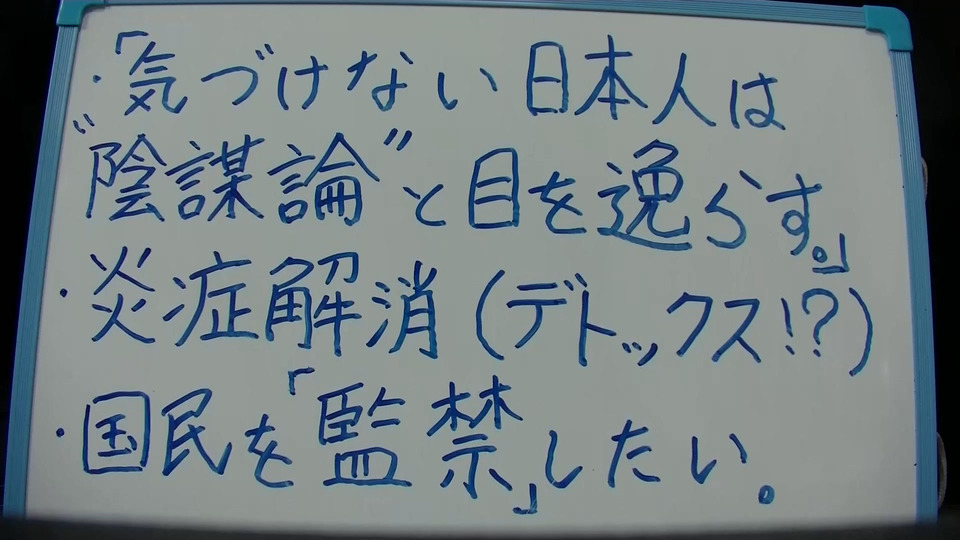 ・「気づけない日本人は
〝陰謀論〟と目を逸らす。」
・炎症解消(デトックス!?)
・国民を「監禁」したい。